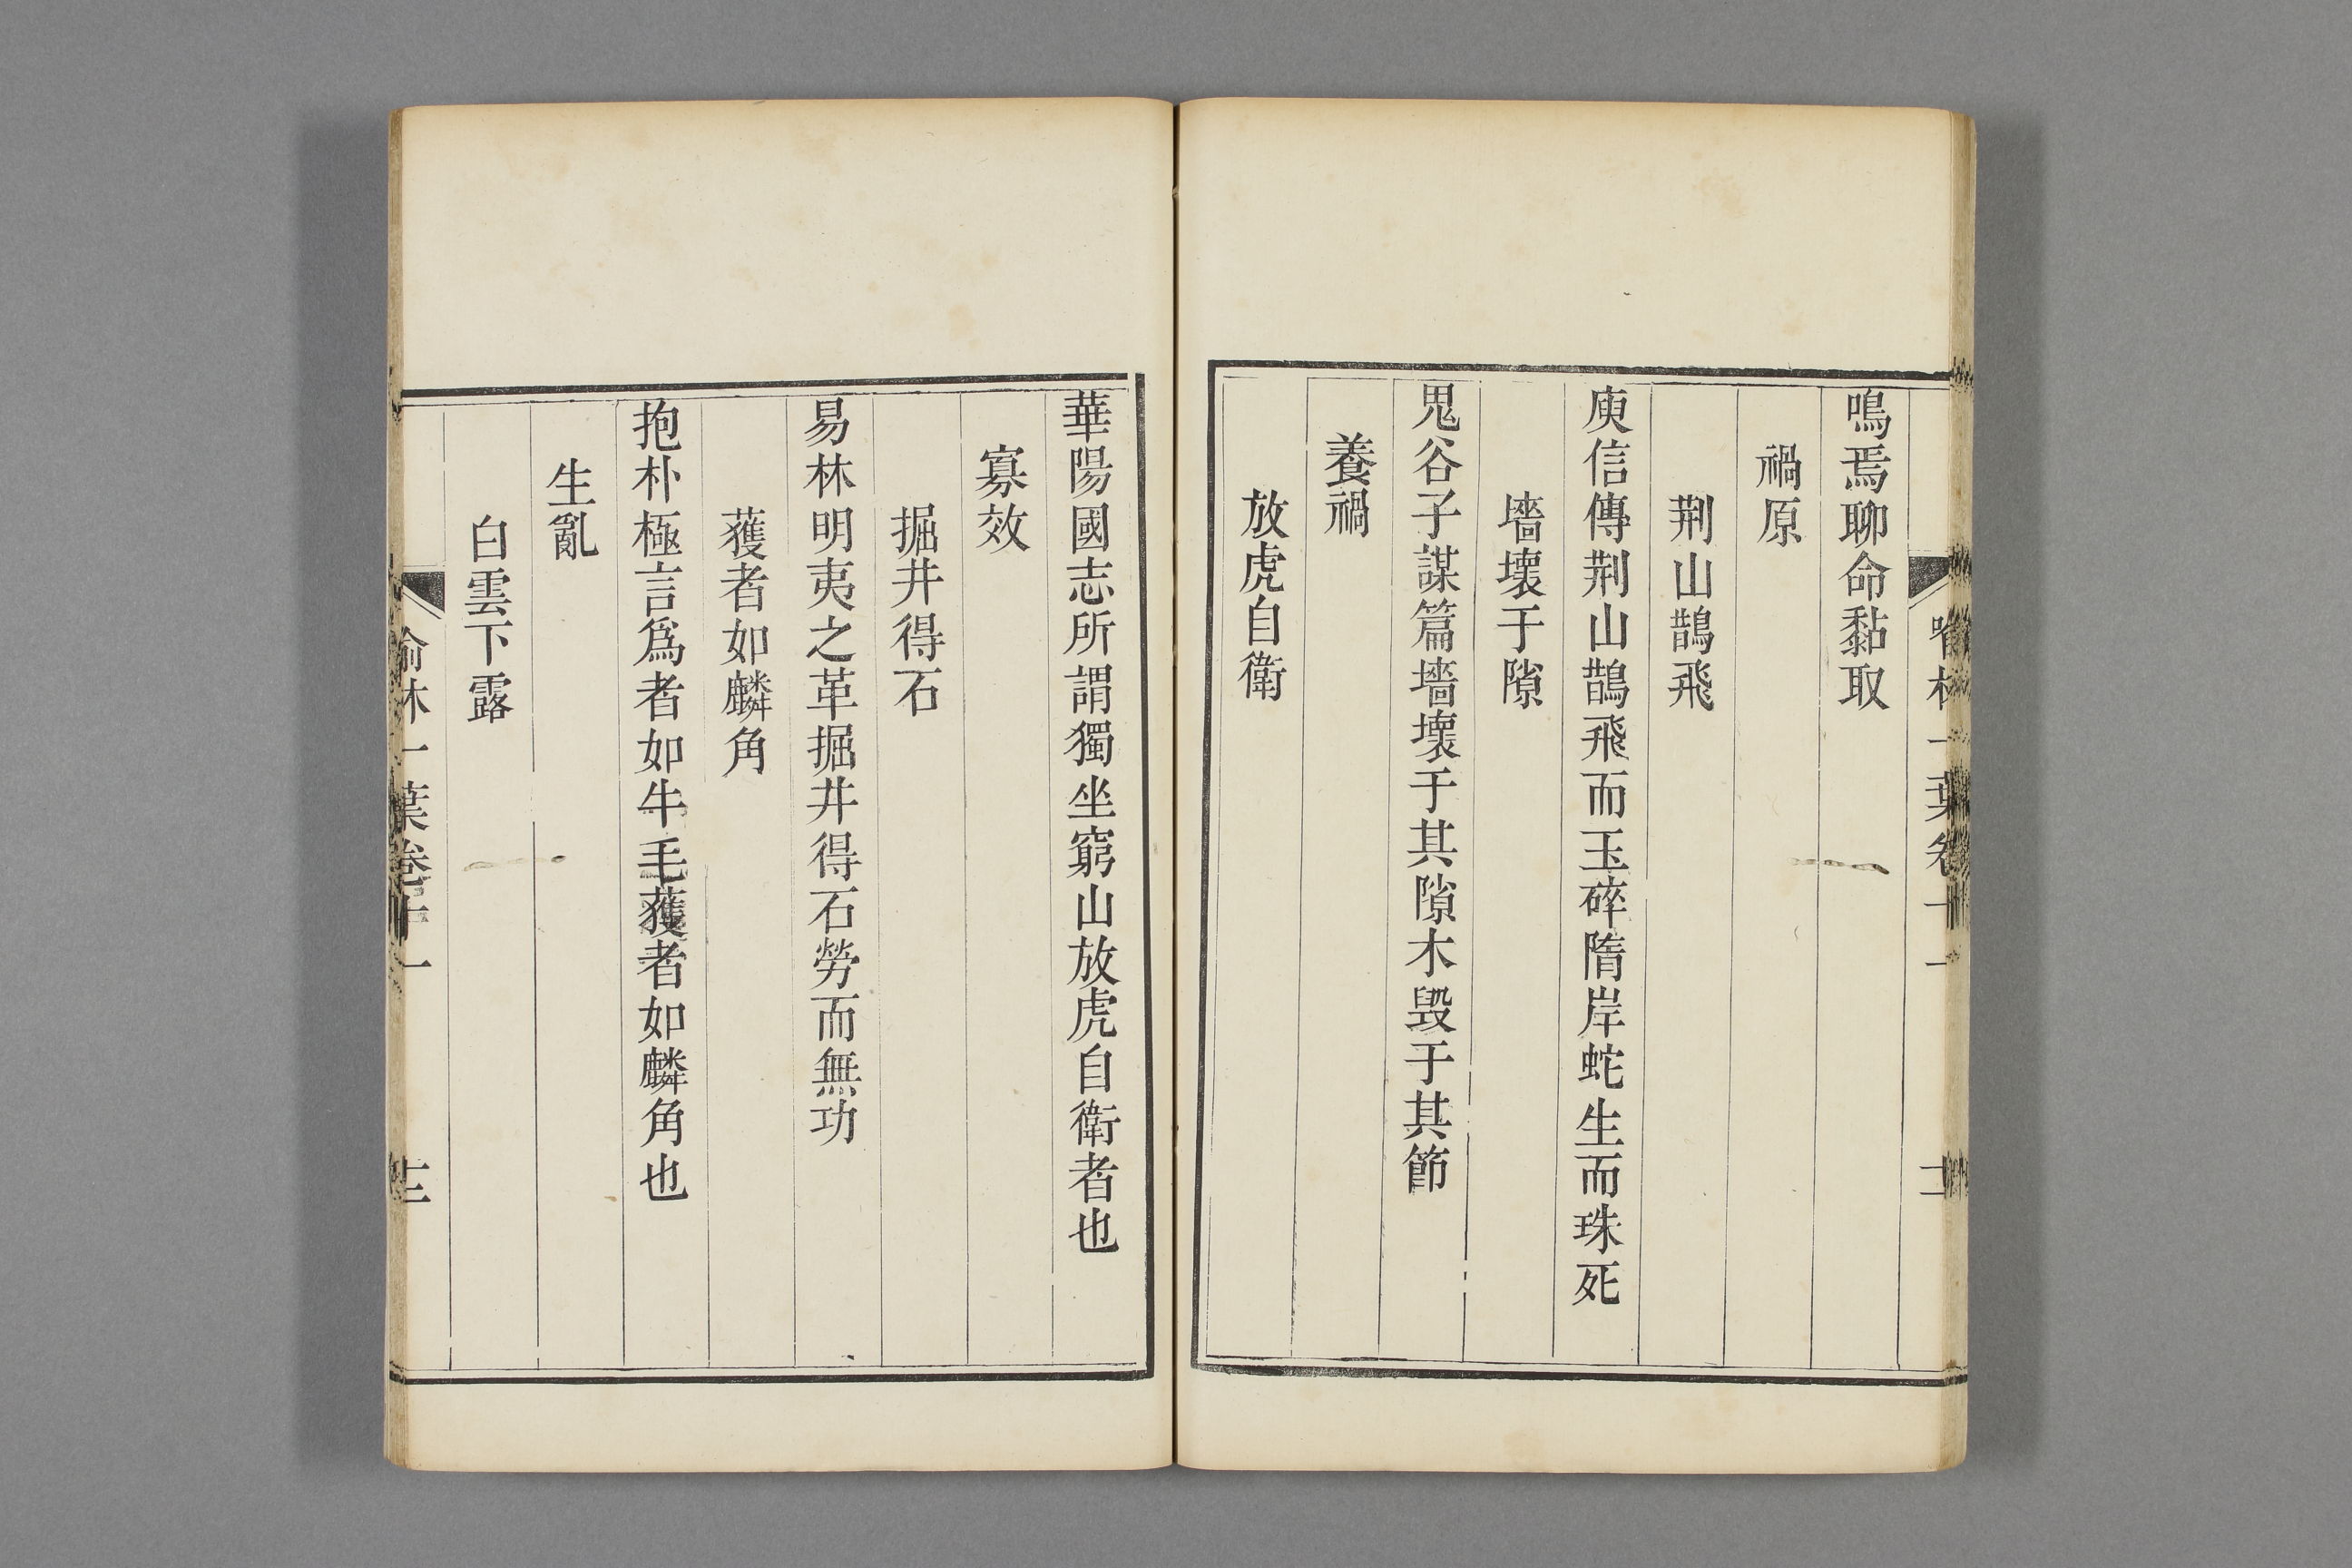 鳴焉聊命黏取
禍原
荆山鵲飛
庾信傳荆山鵲飛而玉碎隋岸蛇生而珠死
墻壞于隙
鬼谷子謀篇墻壞于其隙木毀于其節
養禍
放虎自衛
華陽國志所謂獨坐窮山放虎自衛者也
寡效
掘井得石
易林明夷之革掘井得石勞而無功
獲者如麟角
抱朴極言爲者如牛毛獲者如麟角也
生亂
白雲下露
喻林一葉卷十一